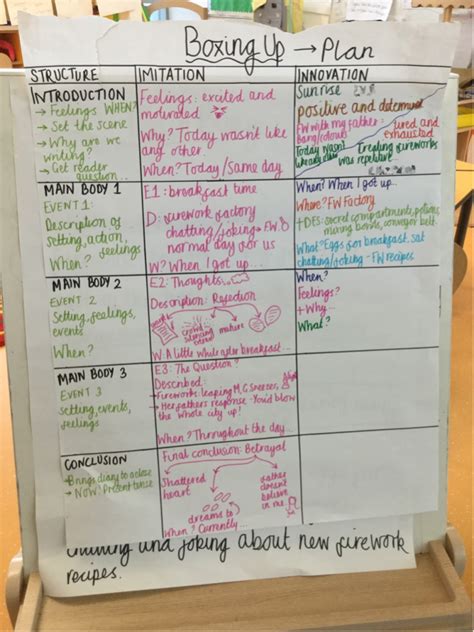 Boxing Up → Plan
STRUCTURE
IMITATION
INNOVATION
INTRODUCTION
→ Feelings WHEN?
→ Set the scene
→ Why are we
writing?
→ Get reader
question...
Feelings: excited and
motivated
Why? Today wasn't like
any other.
When? Today/Same day
Sunrise
positive and determined
FW with my father =
bang/clouds
tired and
exhausted
Today wasn't
Creating fireworks
was repetitive
MAIN BODY 1
EVENT 1:
Description of
setting, action,
feelings
When?
E1: breakfast time
D: firework factory
chatting/joking → FW
normal day for us
W? When I got up...
When? When I got up...
Where? FW Factory
+DES: secret compartments, potions,
mixing bowls, conveyor belt.
What? Eggs for breakfast, sat
chatting/joking - FW recipes
MAIN BODY 2
EVENT 2
Setting, feelings,
events
When?
E2: Thoughts...
Description: Rejection
crowd
silencing
mature
W: A little while after breakfast...
When?
Feelings?
+ Why...
What?
MAIN BODY 3
EVENT 3
setting, events,
feelings
E3: The Question?
Described:
→ Fireworks leaping, M, G Sneezes,
→ Her fathers response - You'd blow
the whole city up!
When? Throughout the day...
CONCLUSION
→ Brings diary to a close
→ Now: Present tense
Final conclusion: Betrayal
Shattered
heart
father
doesn't
believe
in me
dreams to
When? Currently...
chatting and joking about new firework
recipes.